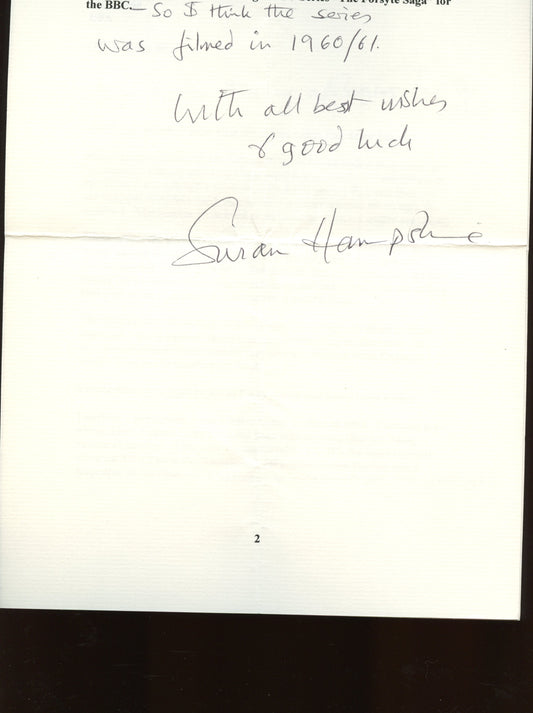 the BBC.— So I think the series
was filmed in 1960/61.
With all best wishes
& good luck
Susan Hampshire
2